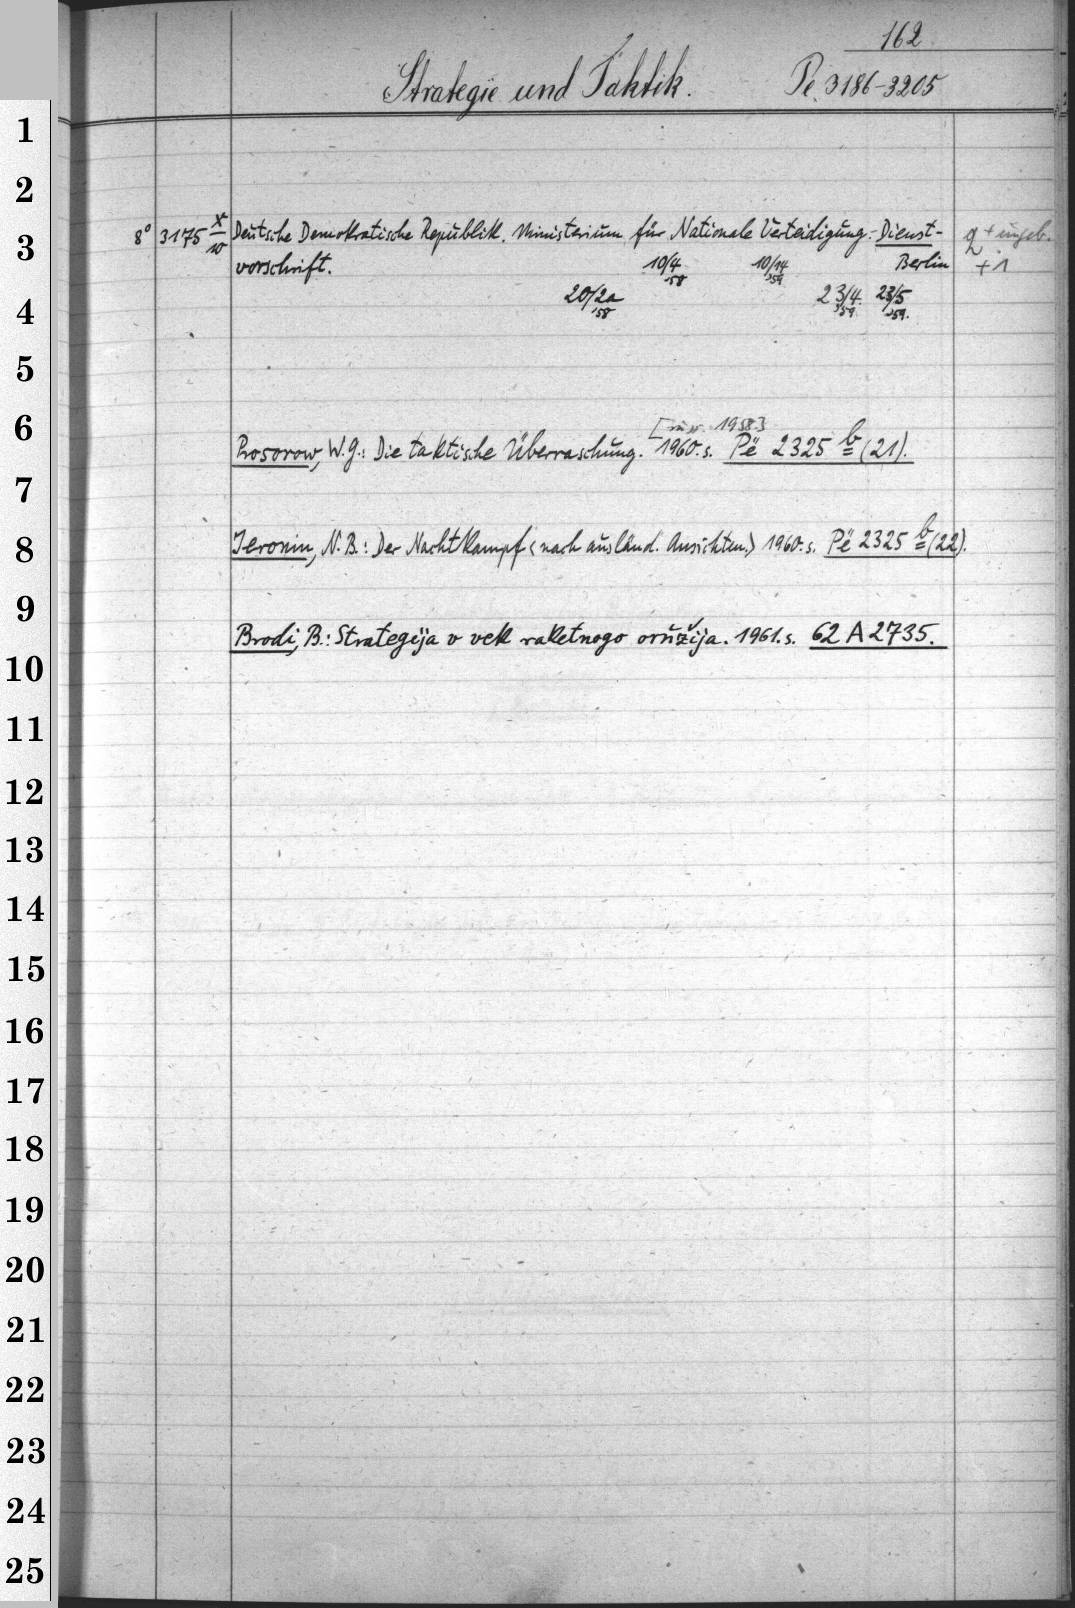 162
Strategie und Taktik. Pe. 3186-3205
8° 3175 x/10 Deutsche Demokratische Republik. Ministerium für Nationale Verteidigung.- Dienst-
vorschrift. 10/4 '58 10/14 '59 Berlin +1
20/2a '58 23/4 '59. 23/5 '59.
1958.]
Rosorow, W.G.: Die taktische Überraschung. 1960. s. Pë 2325 b (21).
Jeronin, N.B.: Der Nachtkampf (nach ausländ. Ansichten.) 1960. s. Pë 2325 b (22).
Brodi, B.: Strategija v vek raketnogo oružija. 1961. s. 62 A 2735.
1
2
3
4
5
6
7
8
9
10
11
12
13
14
15
16
17
18
19
20
21
22
23
24
25